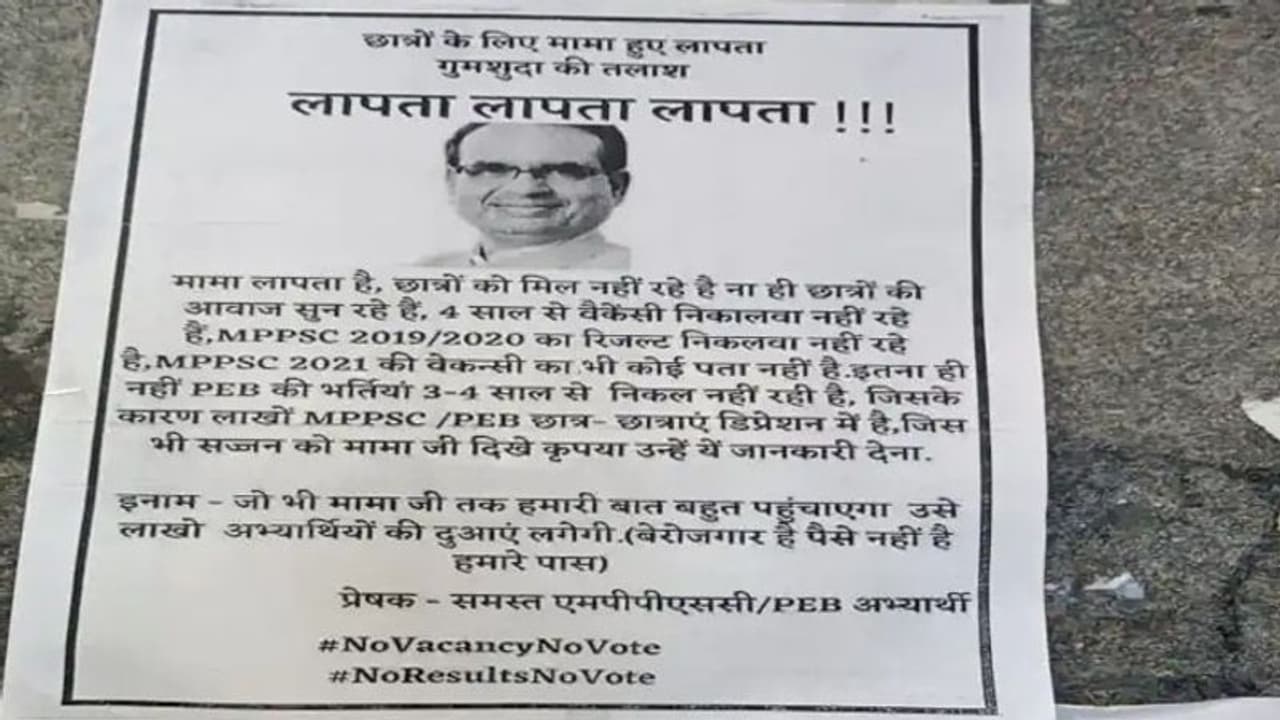 छात्रों के लिए मामा हुए लापता
गुमशुदा की तलाश
लापता लापता लापता !!!
मामा लापता है, छात्रों को मिल नहीं रहे है ना ही छात्रों की
आवाज सुन रहे हैं, 4 साल से वैकेंसी निकालवा नहीं रहे
हैं,MPPSC 2019/2020 का रिजल्ट निकलवा नहीं रहे
है,MPPSC 2021 की वेकन्सी का.भी कोई पता नहीं है.इतना ही
नहीं PEB की भर्तियां 3-4 साल से निकल नहीं रही है, जिसके
कारण लाखों MPPSC /PEB छात्र- छात्राएं डिप्रेशन में है,जिस
भी सज्जन को मामा जी दिखे कृपया उन्हें यें जानकारी देना.
इनाम - जो भी मामा जी तक हमारी बात बहुत पहुंचाएगा उसे
लाखो अभ्यार्थियों की दुआएं लगेगी.(बेरोजगार है पैसे नहीं है
हमारे पास)
प्रेषक - समस्त एमपीपीएससी/PEB अभ्यार्थी
#NoVacancyNoVote
#NoResultsNoVote